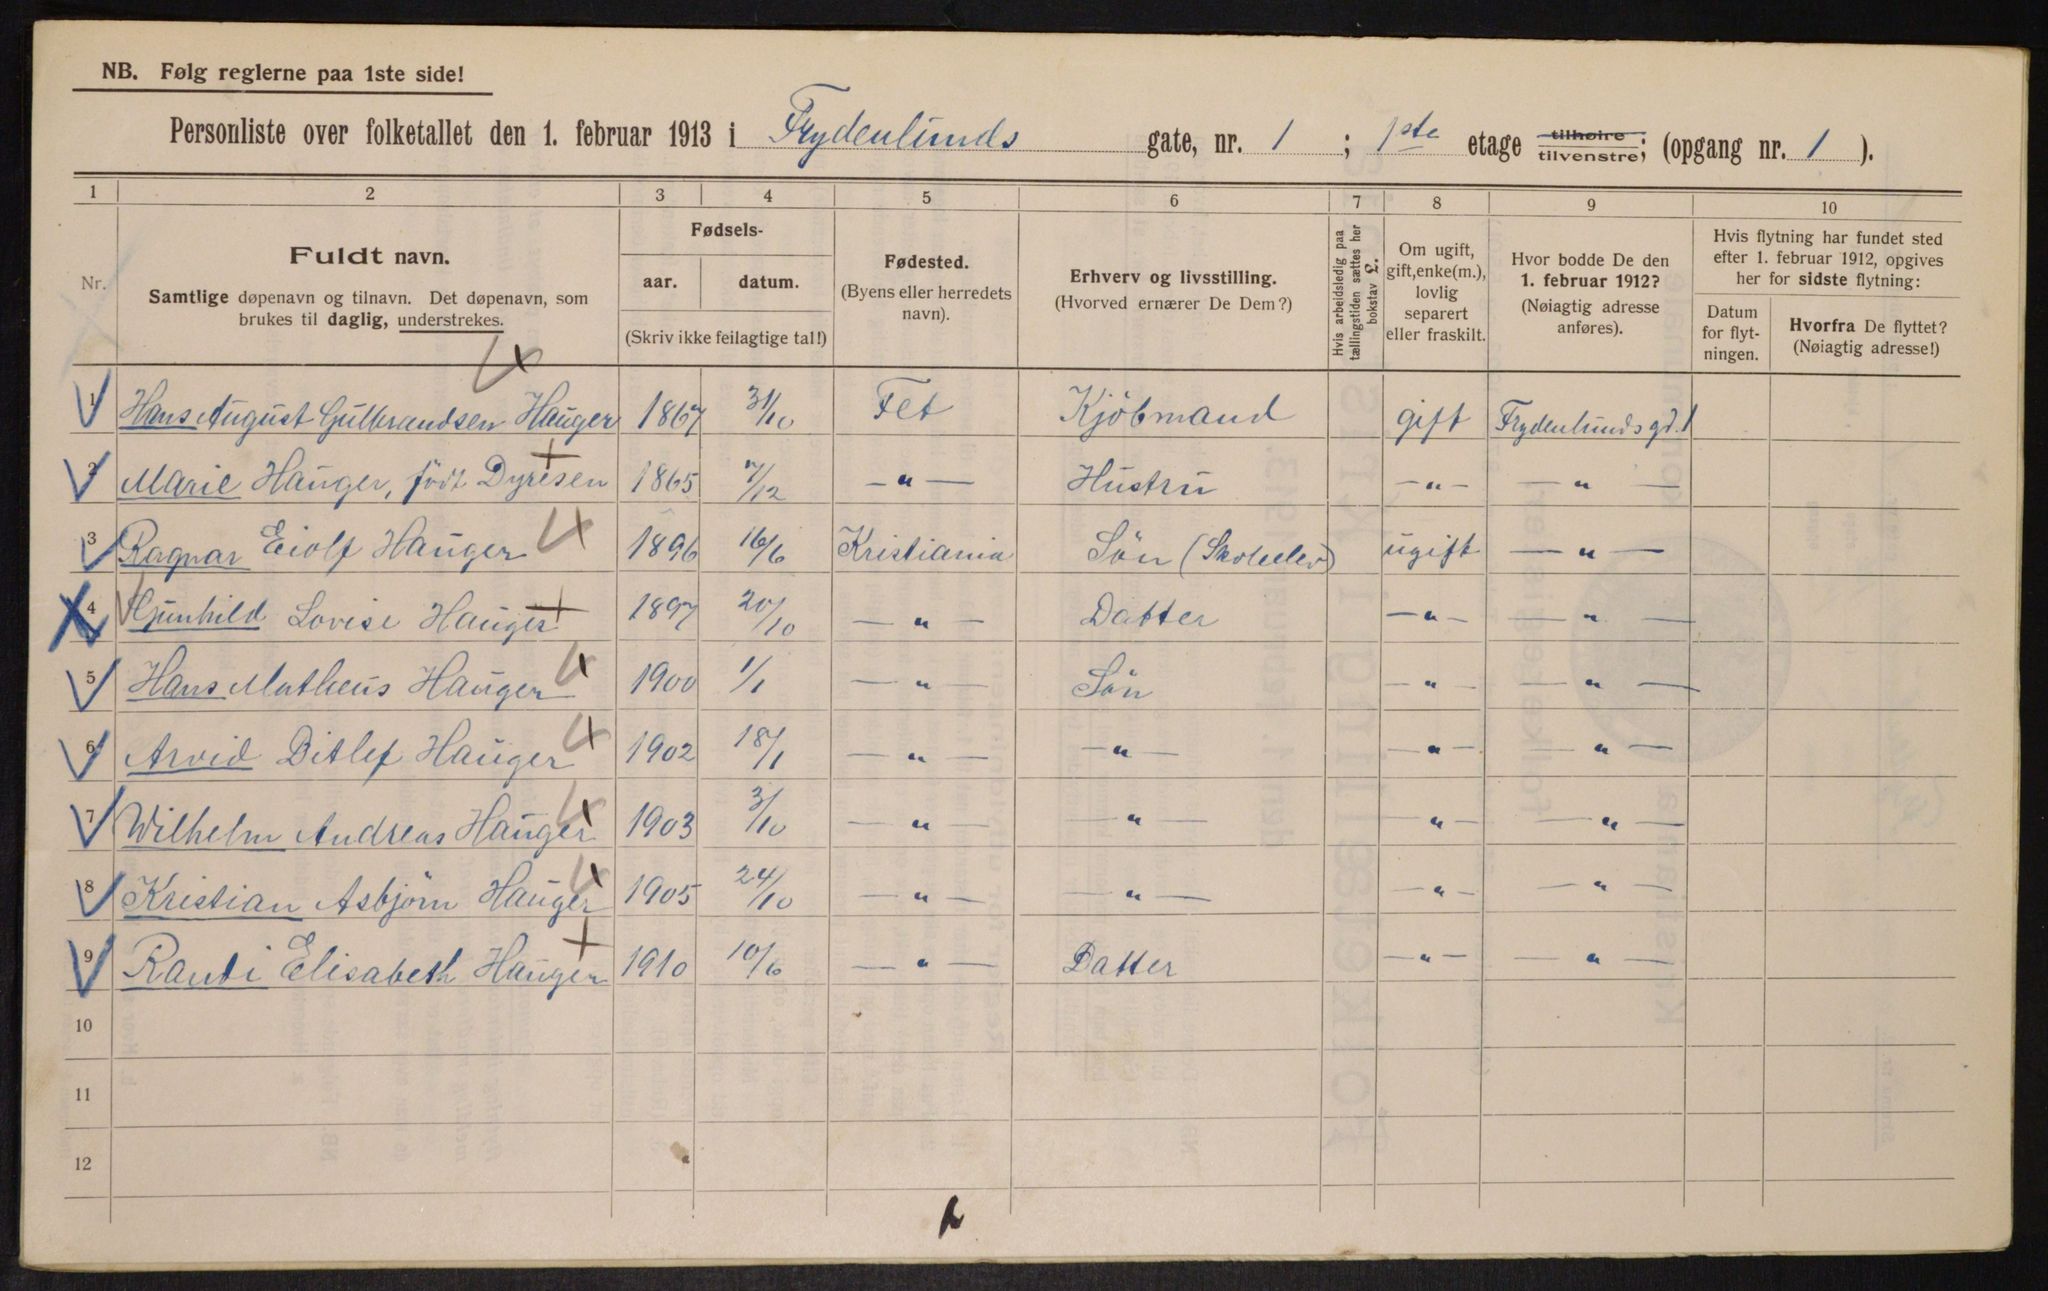 NB. Følg reglerne paa 1ste side!
Personliste over folketallet den 1. februar 1913 i Frydenlunds gate, nr. 1 ; 1ste etage tilhøire tilvenstre; (opgang nr. 1 ).
1 2 3 4 5 6 7 8 9 10
Nr.
Fuldt navn.
Samtlige døpenavn og tilnavn. Det døpenavn, som
brukes til daglig, understrekes.
Fødsels-
aar. datum.
(Skriv ikke feilagtige tal!)
Fødested.
(Byens eller herredets
navn).
Erhverv og livsstilling.
(Hvorved ernærer De Dem?)
Hvis arbeidsledig paa
tællingstiden sættes her
bokstav L.
Om ugift,
gift, enke(m.),
lovlig
separert
eller fraskilt.
Hvor bodde De den
1. februar 1912?
(Nøiagtig adresse
anføres).
Hvis flytning har fundet sted
efter 1. februar 1912, opgives
her for sidste flytning:
Datum
for flyt-
ningen.
Hvorfra De flyttet?
(Nøiagtig adresse!)
1 Hans August Gulbrandsen Hauger 1867 31/10 Fet Kjøbmand gift Frydenlundsgd. 1
2 Marie Hauger, født Dyresen 1865 7/12 — " — Hustru — " — — " —
3 Ragnar Eiolf Hauger 1896 16/6 Kristiania Søn (Skoleelev) ugift — " —
4 Gunhild Lovise Hauger 1897 20/10 — " — Datter — " — — " —
5 Hans Matheus Hauger 1900 1/1 — " — Søn — " — — " —
6 Arvid Ditlef Hauger 1902 18/1 — " — — " — — " — — " —
7 Wilhelm Andreas Hauger 1903 3/10 — " — — " — — " — — " —
8 Kristian Asbjørn Hauger 1905 24/10 — " — — " — — " — — " —
9 Randi Elisabeth Hauger 1910 10/6 — " — Datter — " — — " —
10
11
12